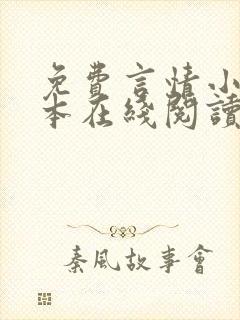 免費言情小
本在綫閱讀
秦風故事會